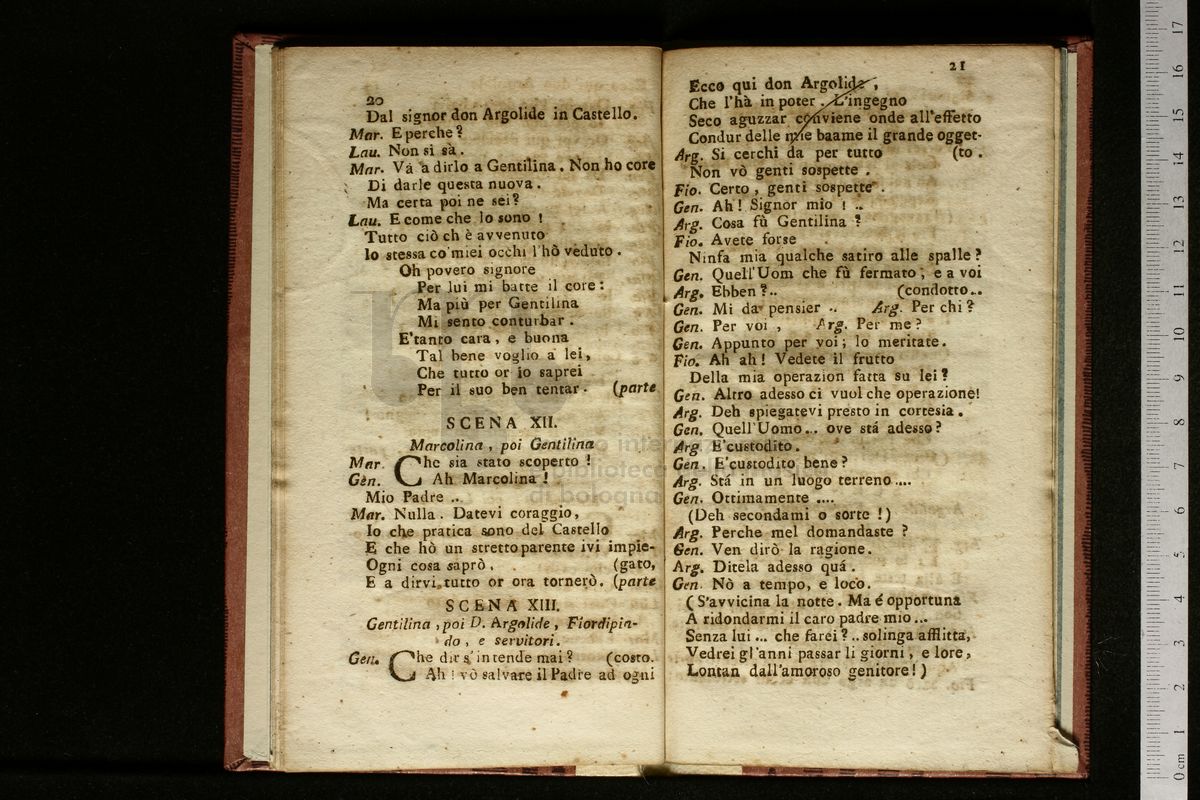 20
Dal signor don Argolide in Castello.
Mar. E perche?
Lau. Non si sà.
Mar. Và a dirlo a Gentilina. Non ho core
Di darle questa nuova.
Ma certa poi ne sei?
Lau. E come che lo sono!
Tutto ciò ch è avvenuto
Io stessa co'miei occhi l'hò veduto.
Oh povero signore
Per lui mi batte il core:
Ma più per Gentilina
Mi sento conturbar.
E'tanto cara, e buona
Tal bene voglio a lei,
Che tutto or io saprei
Per il suo ben tentar. (parte
SCENA XII.
Marcolina, poi Gentilina
Mar. Che sia stato scoperto!
Gen. Ah Marcolina!
Mio Padre ..
Mar. Nulla. Datevi coraggio,
Io che pratica sono del Castello
E che hò un stretto parente ivi impie-
Ogni cosa saprò. (gato,
E a dirvi tutto or ora tornerò. (parte
SCENA XIII.
Gentilina, poi D. Argolide, Fiordipin-
do, e servitori.
Gen. Che dir s'intende mai? (costo.
Ah! vò salvare il Padre ad ogni
21
Ecco qui don Argolide,
Che l'hà in poter. L'ingegno
Seco aguzzar conviene onde all'effetto
Condur delle mie baame il grande ogget-
Arg. Si cerchi da per tutto (to.
Non vò genti sospette.
Fio. Certo, genti sospette.
Gen. Ah! Signor mio! ..
Arg. Cosa fù Gentilina?
Fio. Avete forse
Ninfa mia qualche satiro alle spalle?
Gen. Quell'Uom che fù fermato, e a voi
Arg. Ebben?.. (condotto..
Gen. Mi da pensier .. Arg. Per chi?
Gen. Per voi, Arg. Per me?
Gen. Appunto per voi; lo meritate.
Fio. Ah ah! Vedete il frutto
Della mia operazion fatta su lei?
Gen. Altro adesso ci vuol che operazione!
Arg. Deh spiegatevi presto in cortesia.
Gen. Quell'Uomo... ove stá adesso?
Arg. E'custodito.
Gen. E'custodito bene?
Arg. Stá in un luogo terreno....
Gen. Ottimamente ....
(Deh secondami o sorte!)
Arg. Perche mel domandaste?
Gen. Ven dirò la ragione.
Arg. Ditela adesso quá.
Gen. Nò a tempo, e loco.
(S'avvicina la notte. Ma é opportuna
A ridondarmi il caro padre mio...
Senza lui ... che farei?.. solinga afflitta,
Vedrei gl'anni passar li giorni, e l'ore,
Lontan dall'amoroso genitore!)